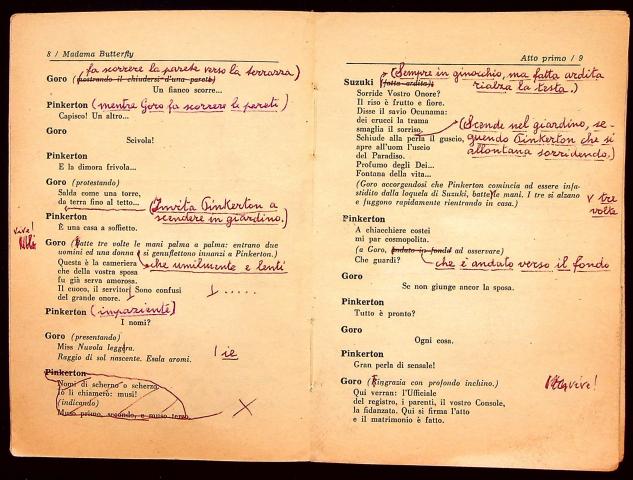 8 / Madama Butterfly
fa scorrere la parete verso la terrazza)
Goro (mostrando il chiudersi d'una parete)
Un fianco scorre...
Pinkerton (mentre Goro fa scorrere le pareti)
Capisco! Un altro...
Goro
Scivola!
Pinkerton
E la dimora frivola...
Goro (protestando)
Salda come una torre,
da terra fino al tetto...
(Invita Pinkerton a
scendere in giardino.)
Pinkerton
È una casa a soffietto.
vive!
Goro (Batte tre volte le mani palma a palma: entrano due
uomini ed una donna e si genuflettono innanzi a Pinkerton.)
che umilmente e lenti
Questa è la cameriera
che della vostra sposa
fu già serva amorosa.
Il cuoco, il servitor. Sono confusi
del grande onore.
Pinkerton (impaziente)
I nomi?
Goro (presentando)
Miss Nuvola leggera.
Raggio di sol nascente. Esala aromi.
ie
Pinkerton
Nomi di scherno o scherzo.
Io li chiamerò: musi!
(indicando)
Muso primo, secondo, e muso terzo.
X
Atto primo / 9
Suzuki (fatta ardita)
(Sempre in ginocchio, ma fatta ardita
rialza la testa.)
Sorride Vostro Onore?
Il riso è frutto e fiore.
Disse il savio Ocunama:
dei crucci la trama
smaglia il sorriso.
Schiude alla perla il guscio,
apre all'uom l'uscio
del Paradiso.
Profumo degli Dei...
Fontana della vita...
(Scende nel giardino, se-
guendo Pinkerton che si
allontana sorridendo.)
(Goro accorgendosi che Pinkerton comincia ad essere infa-
stidito dalla loquela di Suzuki, batte le mani. I tre si alzano
e fuggono rapidamente rientrando in casa.)
v tre
volte
Pinkerton
A chiacchiere costei
mi par cosmopolita.
(a Goro, andato in fondo ad osservare)
Che guardi?
che è andato verso il fondo
Goro
Se non giunge ancor la sposa.
Pinkerton
Tutto è pronto?
Goro
Ogni cosa.
Pinkerton
Gran perla di sensale!
Goro (Ringrazia con profondo inchino.)
Qui verran: l'Ufficiale
del registro, i parenti, il vostro Console,
la fidanzata. Qui si firma l'atto
e il matrimonio è fatto.